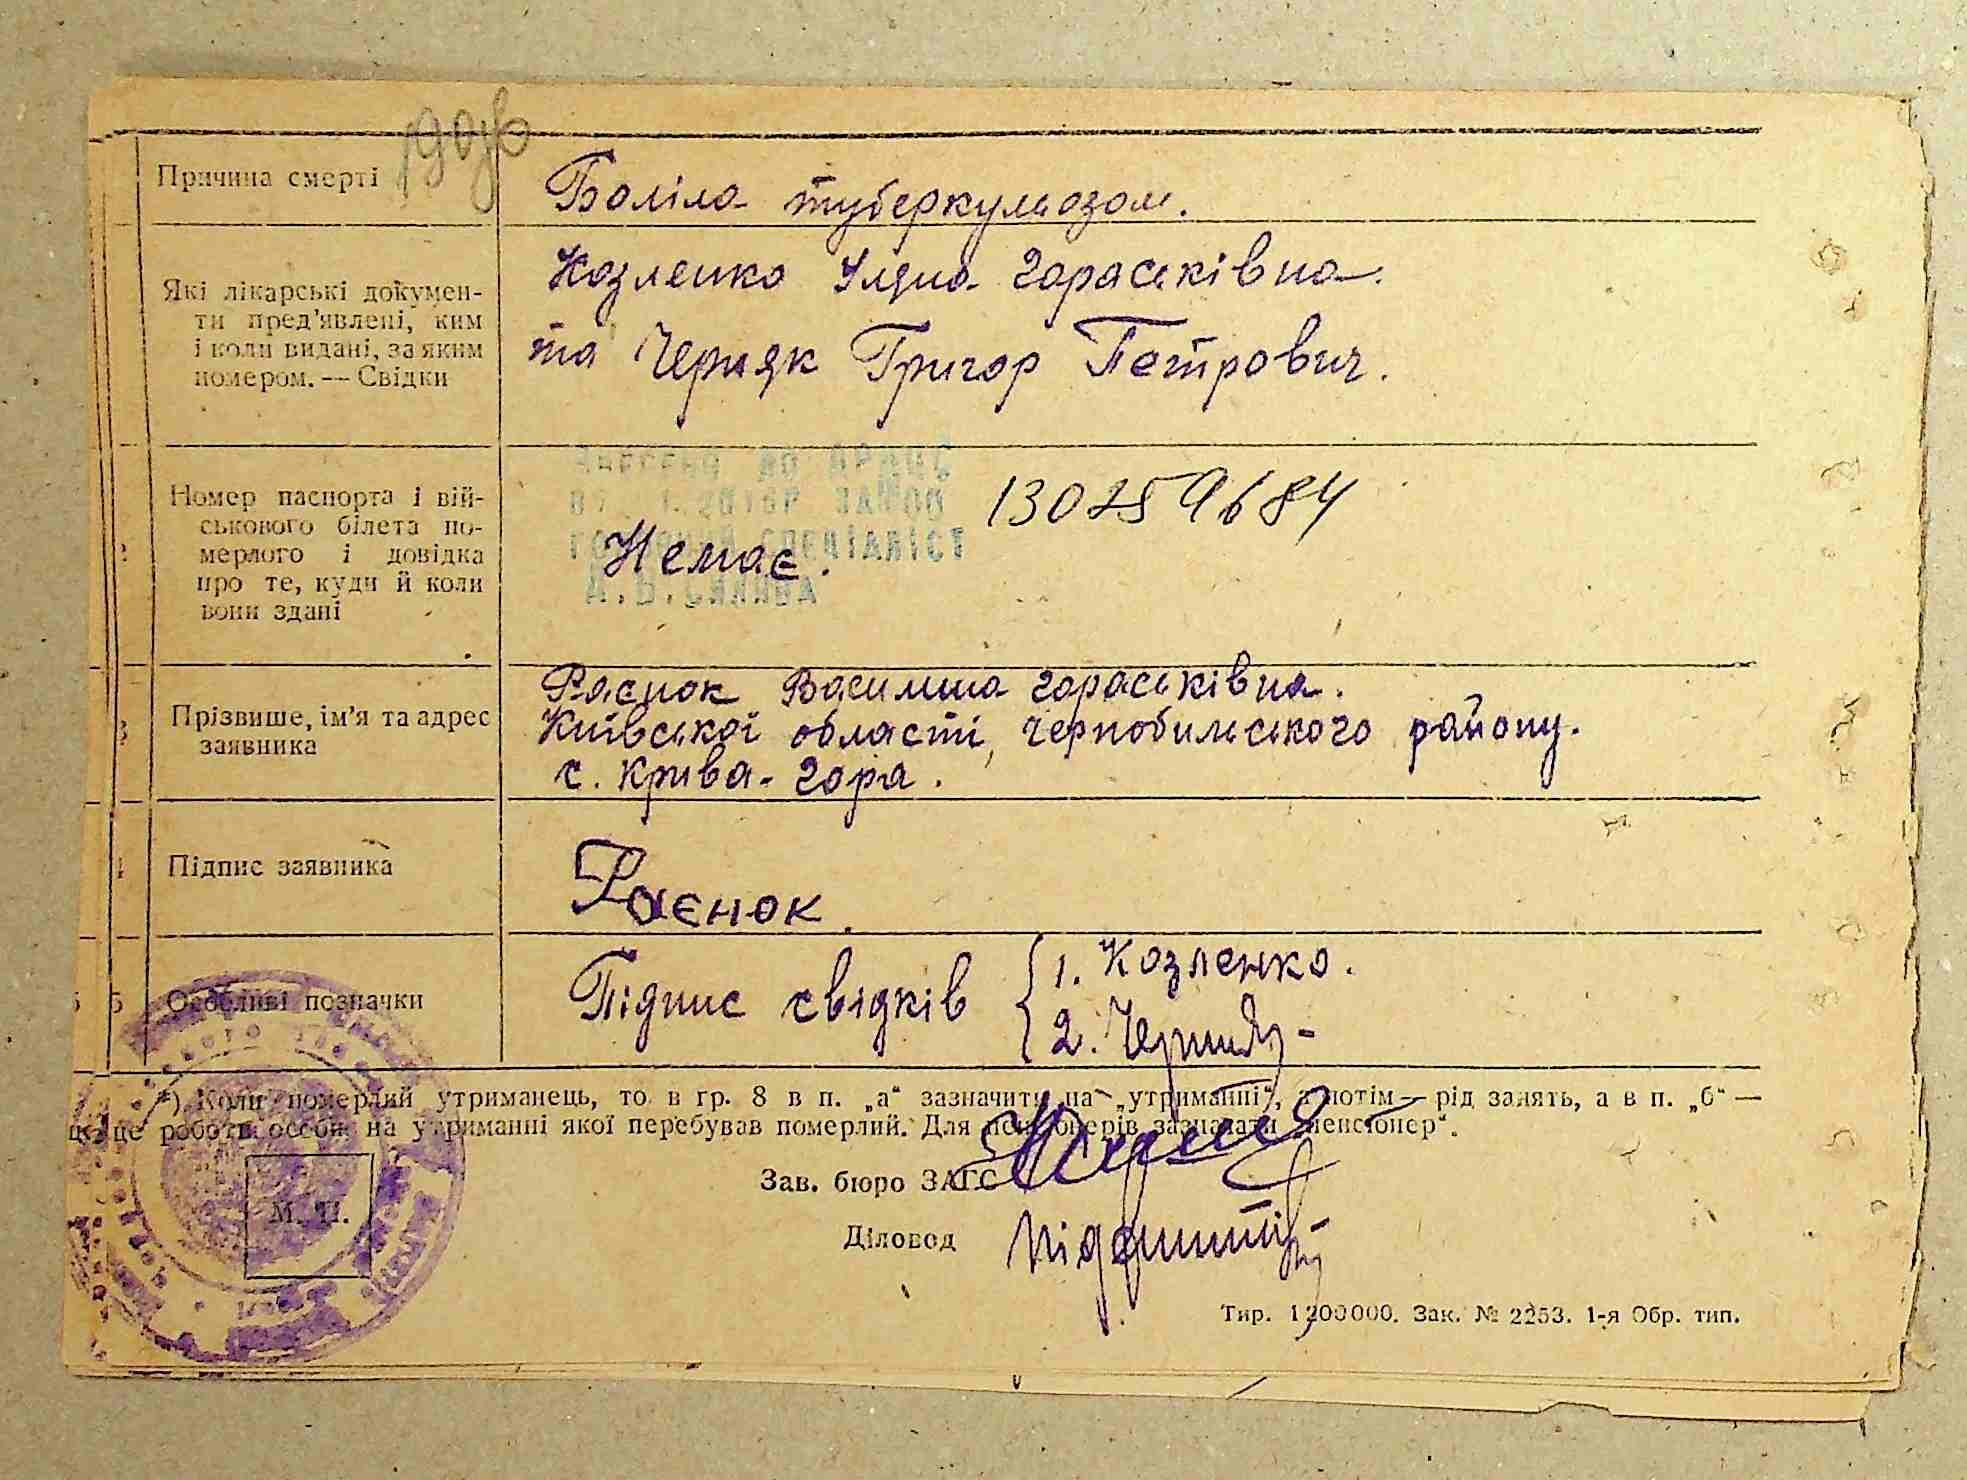 Причина смерті
Боліла туберкульозом.
Які лікарські докумен-
ти пред'явлені, ким
і коли видані, за яким
номером. — Свідки
Козленко Уляна Гораськівна.
та Черняк Григор Петрович.
Номер паспорта і вій-
ськового білета по-
мерлого і довідка
про те, куди й коли
вони здані
ЗАМОО
СПЕЦІАЛІСТ
13025 9684
Немає.
Прізвише, ім'я та адрес
заявника
Раєнок Василина Гораськівна.
Київської області, Чернобильського району.
с. Крива-Гора.
Підпис заявника
Раєнок.
5
5
Особливі позначки
Підпис свідків
1. Козленко.
2. Черняк
*) Коли померлий утриманець, то в гр. 8 в п. „а“ зазначити на „утриманні“, а потім — рід занять, а в п. „б“ —
це роботи особи, на утриманні якої перебував померлий. Для пенсіонерів зазначати „пенсіонер“.
Зав. бюро ЗАГС
Діловод
М. П.
Тир. 1200000. Зак. № 2253. 1-я Обр. тип.